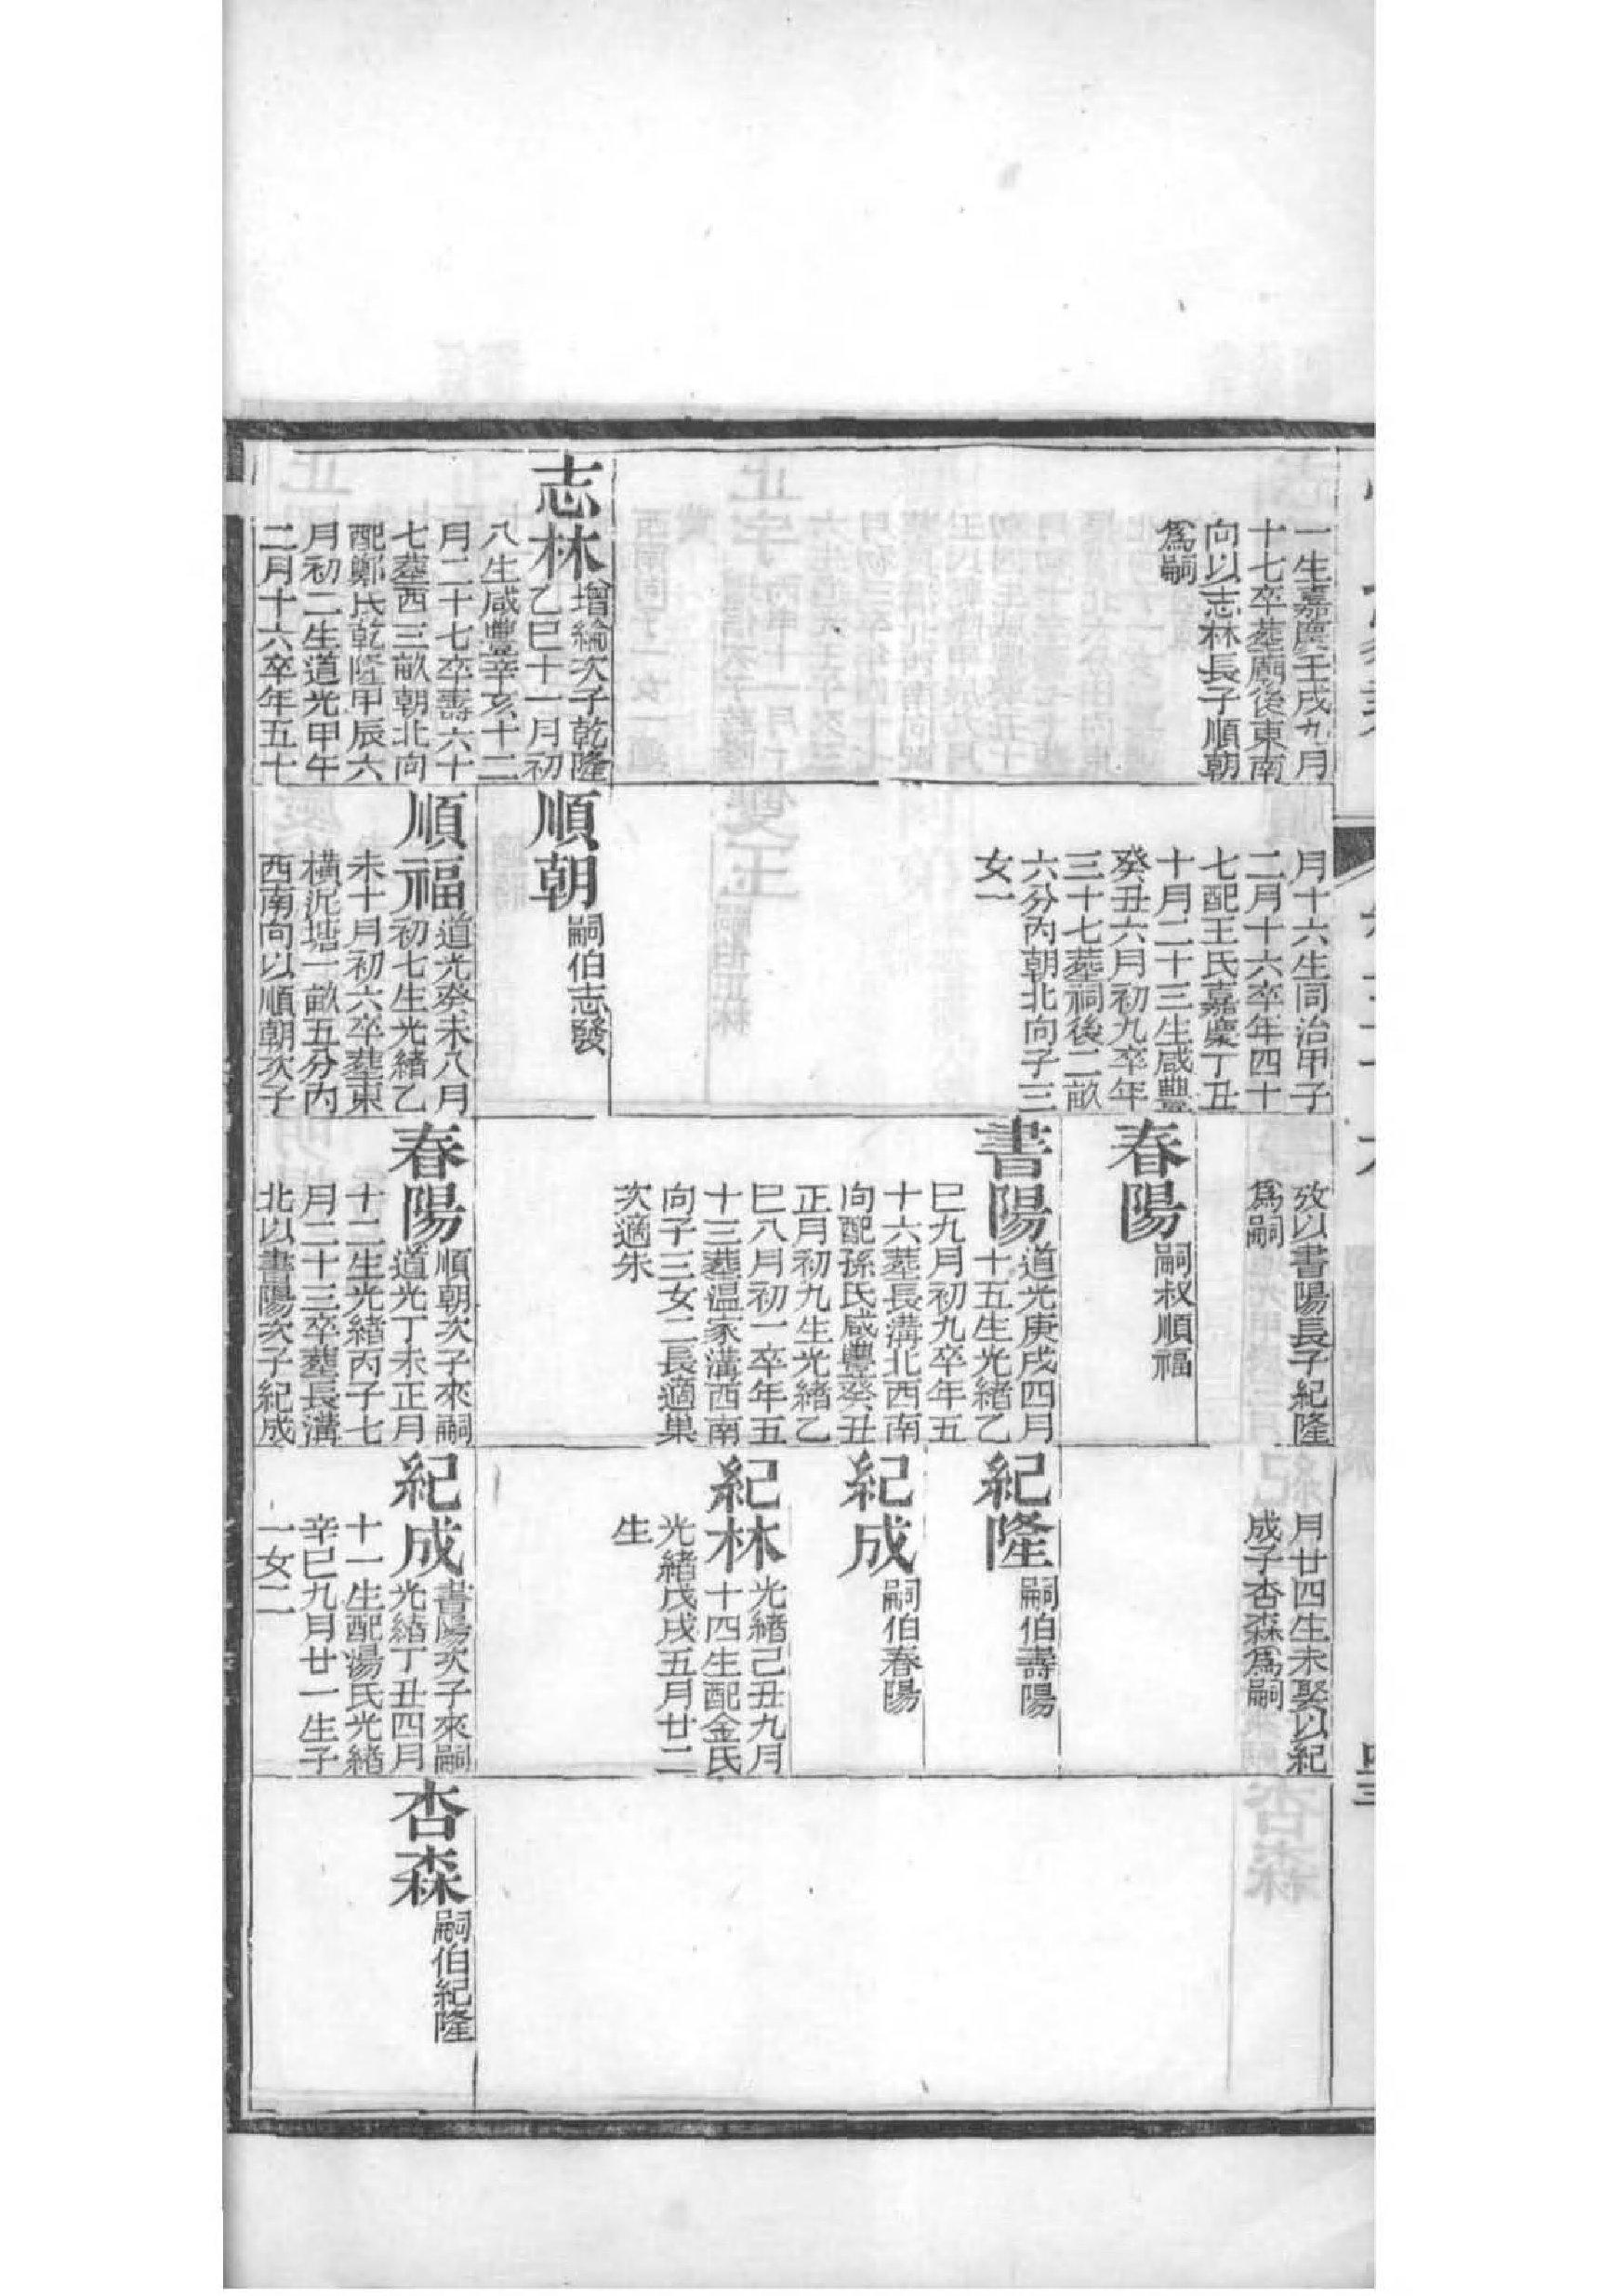 一生嘉慶壬戌九月
十七卒塟廟後東南
向以志林長子順朝
爲嗣
志林
增綸次子乾隆
乙巳十一月初
八生咸豐辛亥十二
月二十七卒壽六十
七塟西三畝朝北向
配鄭氏乾隆甲辰六
月初二生道光甲午
二月十六卒年五十
月十六生同治甲子
二月十六卒年四十
七配王氏嘉慶丁丑
十月二十三生咸豐
癸丑六月初九卒年
三十七塟祠後二畝
六分內朝北向子三
女一
順朝
嗣伯志發
順福
道光癸未八月
初七生光緒乙
未十月初六卒塟東
橫泥塘一畝五分內
西南向以順朝次子
攷以書陽長子紀隆
爲嗣
春陽
嗣叔順福
書陽
道光庚戌四月
十五生光緒乙
巳九月初九卒年五
十六塟長溝北西南
向配孫氏咸豐癸丑
正月初九生光緒乙
巳八月初一卒年五
十三塟温家溝西南
向子三女二長適巢
次適朱
春陽
順朝次子來嗣
道光丁未正月
十二生光緒丙子七
月二十三卒塟長溝
北以書陽次子紀成
月廿四生未娶以紀
成子杏森爲嗣
紀隆
嗣伯壽陽
紀成
嗣伯春陽
紀林
光緒己丑九月
十四生配金氏
光緒戊戌五月廿二
生
紀成
書陽次子來嗣
光緒丁丑四月
十一生配湯氏光緒
辛巳九月廿一生子
一女二
杏森
嗣伯紀隆